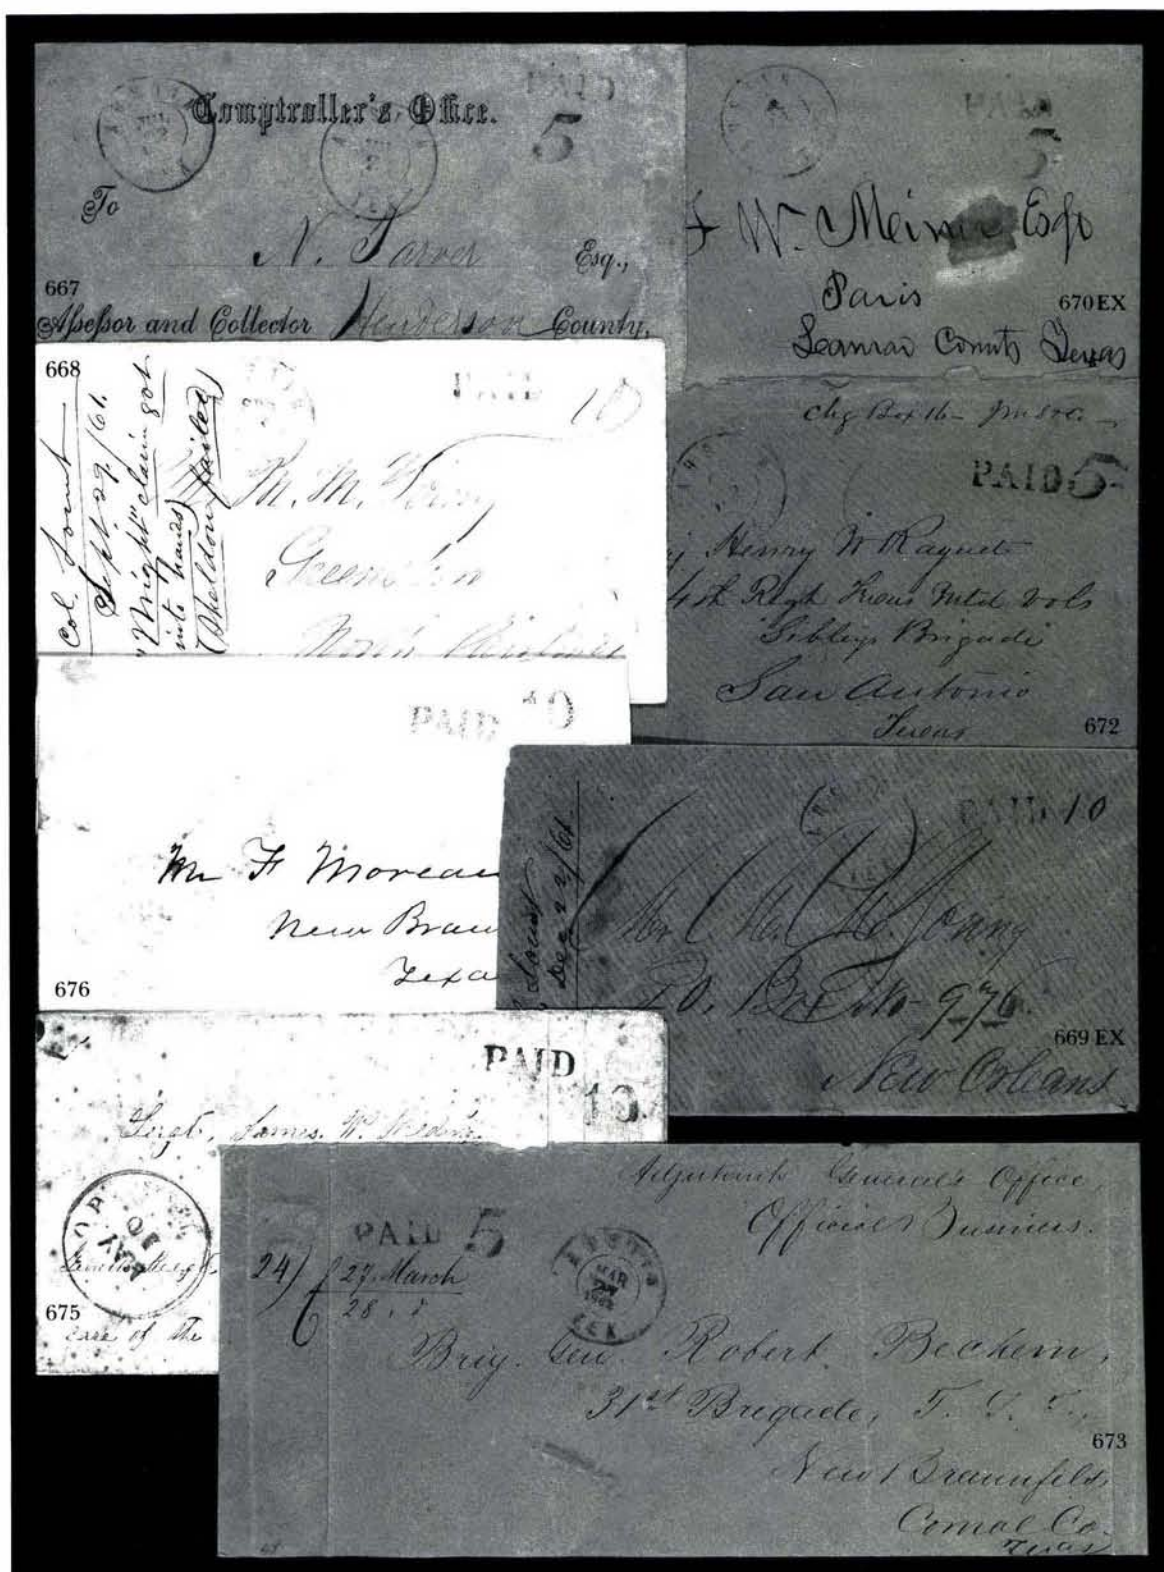 PAID
Comptroller's Office.
5
To
N. Tarver Esq.,
667
Assessor and Collector Henderson County,
PAID
5
W. Esqr
Paris
670 EX
Lamar County Texas
668
Col. Lount
Sept 29/61.
"Wright" claim got
into hands
(Sheldon failed)
PAID 10
M. M.
North
chg Box 16
PAID 5
Henry W Raguet
4th Regt Texas Mtd Vols
Sibleys Brigade
San Antonio
Texas
672
PAID 10
Mr F Moreau
New Brau
Texa
676
PAID 10
Dec 22/61
Mr
P.O. Box No- 976
669 EX
New Orleans
PAID
10
Sergt. James. W.
MAY
30
675
care of the
Adjutant General's Office,
Official Business.
PAID 5
AUSTIN
MAR
27
1862
TEX
24) 27 March
28
Brig. Gen. Robert Bechem,
31st Brigade, T. S. T.,
673
New Braunfels,
Comal Co.
Texas